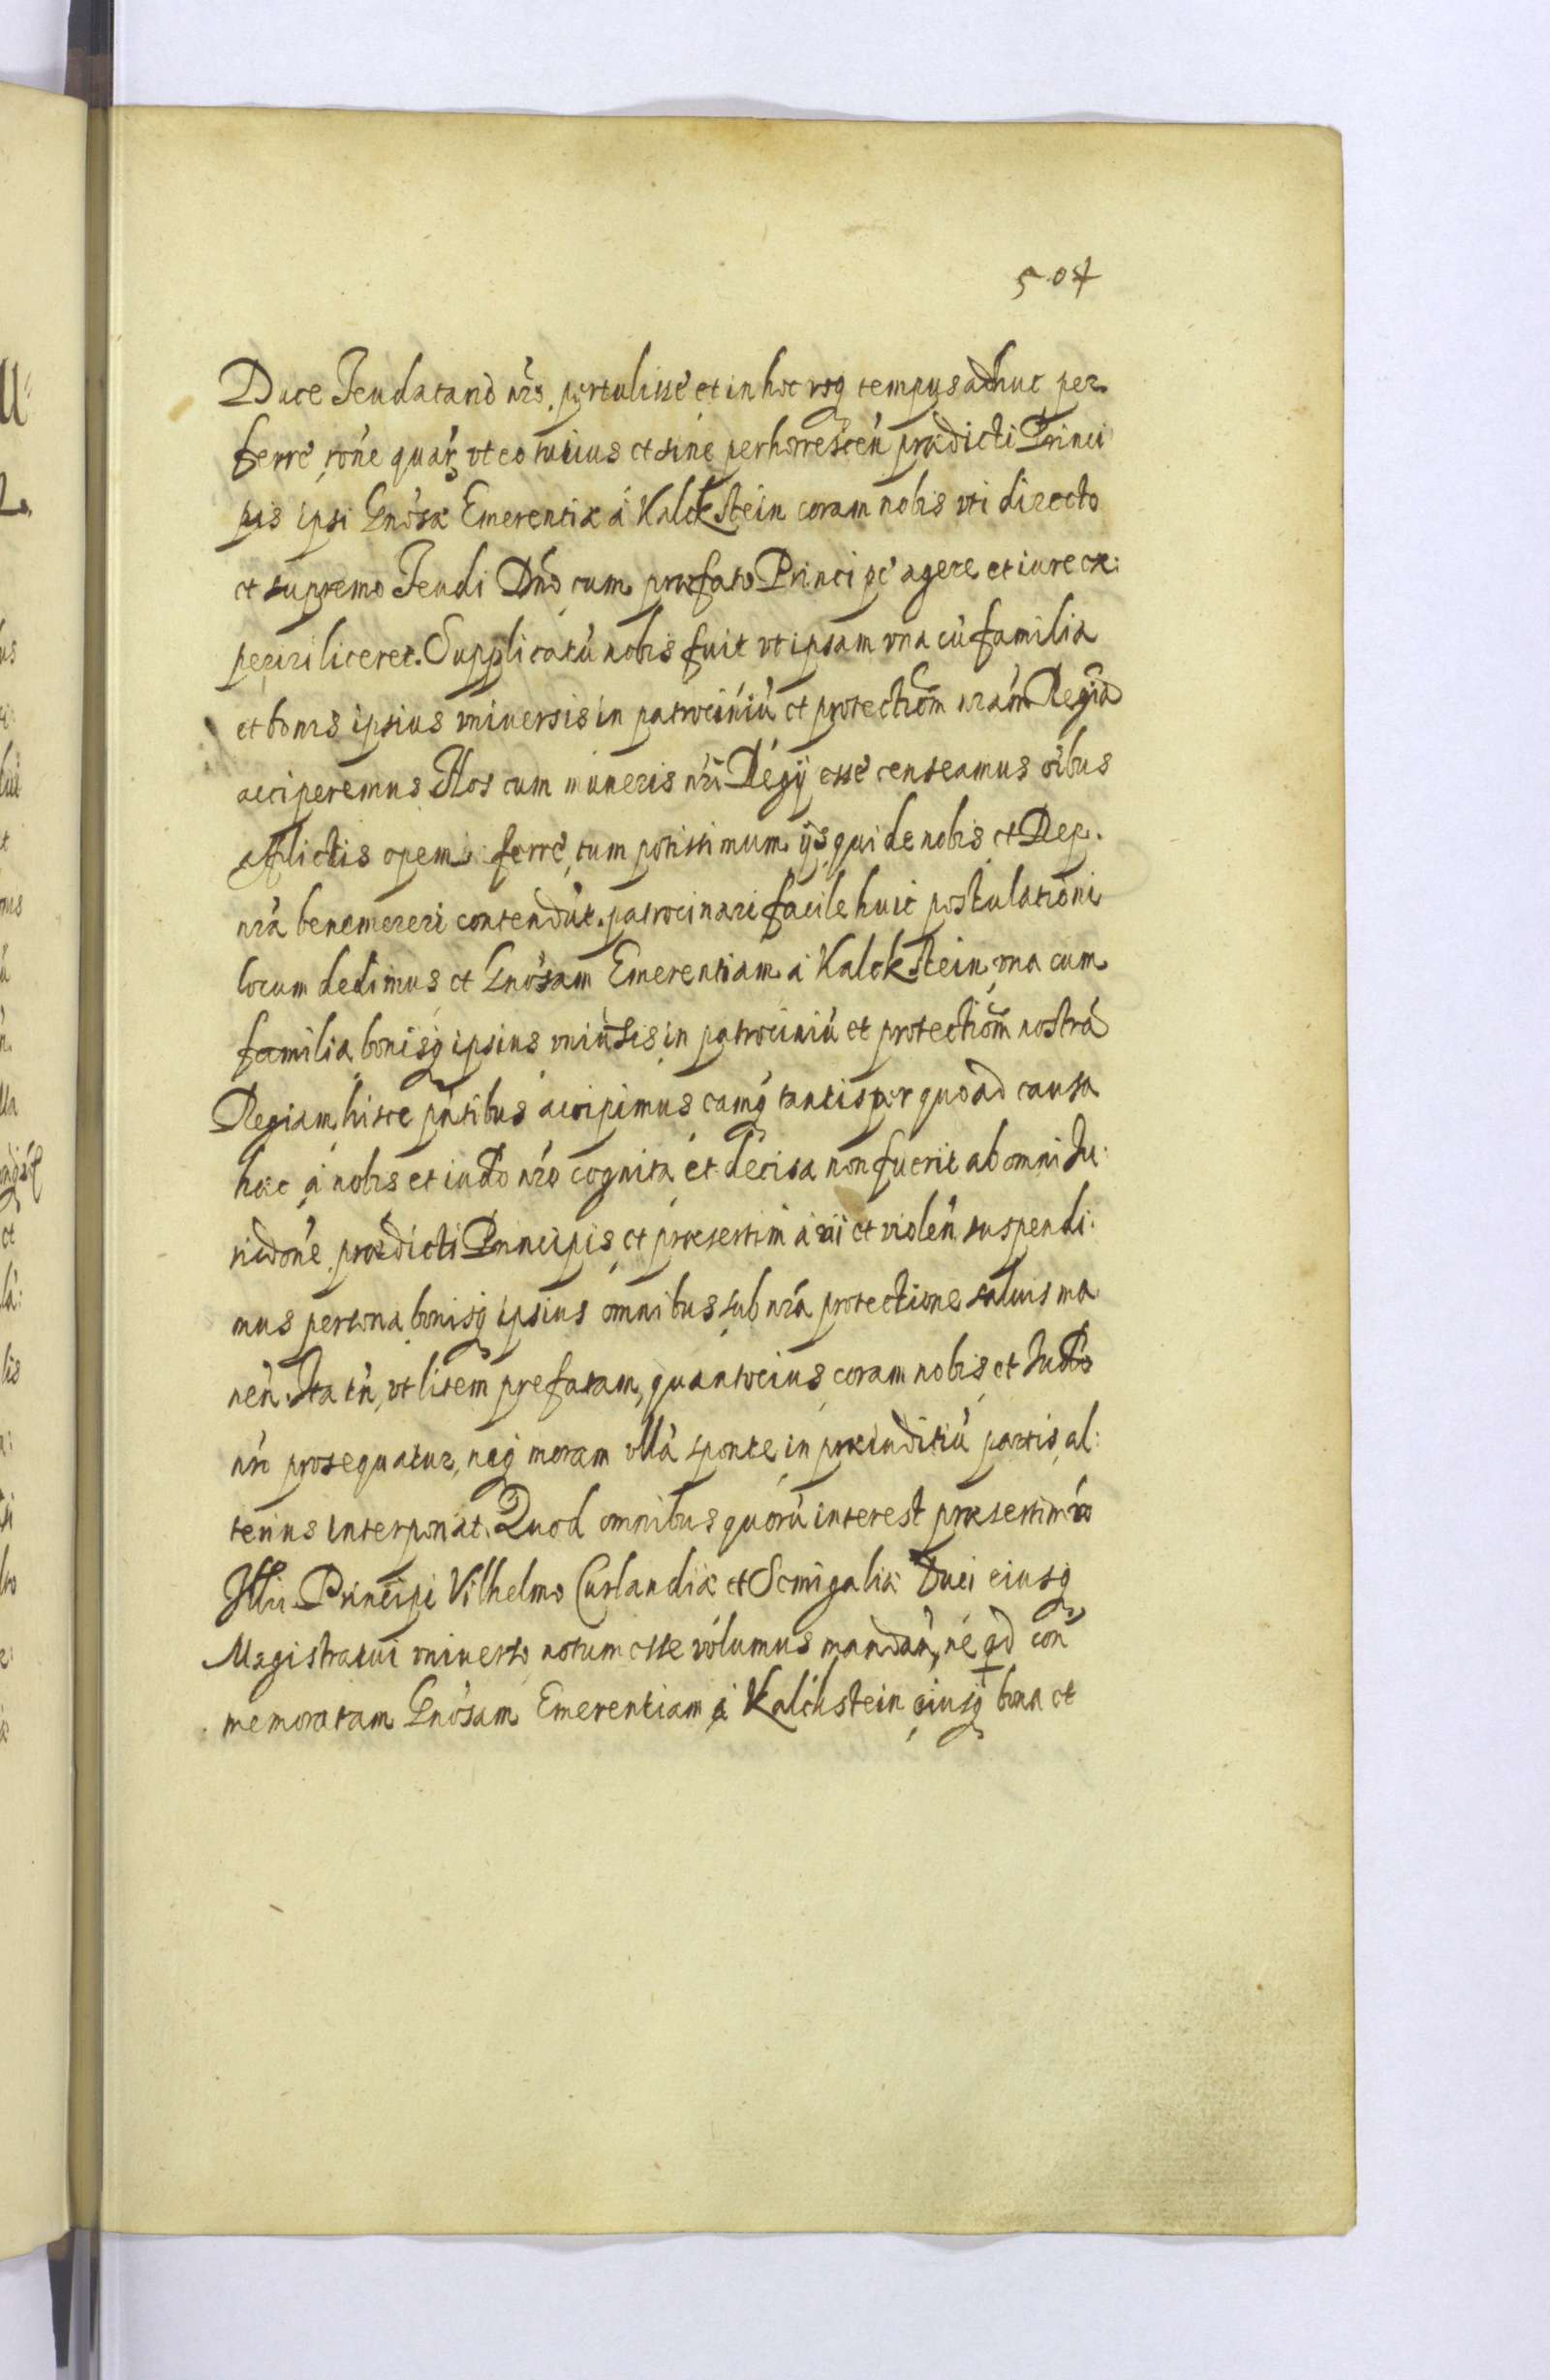 504
Duce Feudatario nro. pertulisse et in hoc vsq tempus adhuc per
ferre, rone quar vt eo tutius et sine perhorrescen prædicti Princi
pis ipsi Gnosæ Emerentiæ à Kalckstein coram nobis vti directo
et supremo Feudi Dno cum præfato Principe agere et iure ex:
periri liceret. Supplicatu nobis fuit vt ipsam vna cu familia
et bonis ipsius vniuersis in patrociniu et protectiom nram Regia
acciperemus Nos cum muneris nri Regij esse censeamus oibus
afflictis opem ferre, tum potissimum ijs qui de nobis et Rep.
nra benemereri contendut. patrocinari facile huic postulationi
locum dedimus et Gnosam Emerentiam à Kalckstein vna cum
familia bonisq ipsius vniuersis in patrociniu et protectiom nostra
Regiam hisce pntibus accipimus eamq tantisper quoad causa
hæc à nobis et iudo nro cognita et decisa non fuerit ab omni Ju:
risdone prædicti Principis, et præsertim à vi et violen suspendi:
mus persona bonisq ipsius omnibus sub nra protectione saluis ma
nen. Ita tn, vt litem prefatam, quantocius coram nobis et Judo
nro prosequatur, neq moram vlla sponte in præiuditiu partis al:
terius interponat. Quod omnibus quoru interest præsertim vo
Illri Principi Vilhelmo Curlandiæ et Semigaliæ Duci eiusq
Magistratui vniuerso notum esse volumus mandan, ne qd con
memoratam Gnosam Emerentiam à Kalckstein eiusq bona et